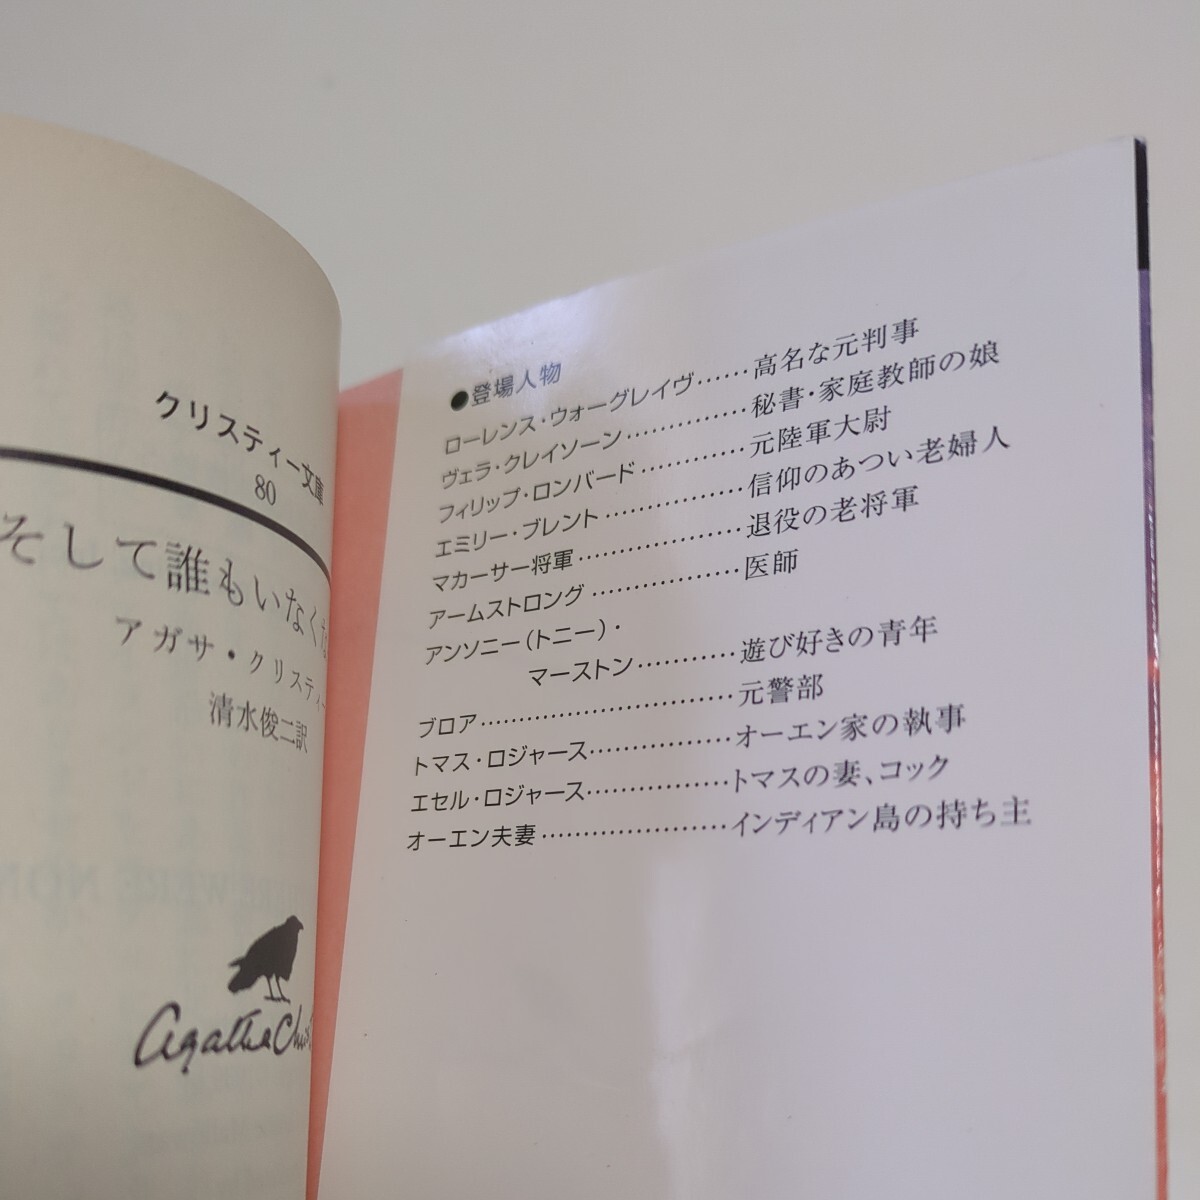 クリスティー文庫
80
そして誰もいなくな
アガサ・クリスティー
清水俊二訳
Agatha Chris
●登場人物
ローレンス・ウォーグレイヴ……高名な元判事
ヴェラ・クレイソーン……………秘書・家庭教師の娘
フィリップ・ロンバード…………元陸軍大尉
エミリー・ブレント………………信仰のあつい老婦人
マカーサー将軍……………………退役の老将軍
アームストロング…………………医師
アンソニー(トニー)・
マーストン…………遊び好きの青年
ブロア………………………………元警部
トマス・ロジャース………………オーエン家の執事
エセル・ロジャース………………トマスの妻、コック
オーエン夫妻………………………インディアン島の持ち主